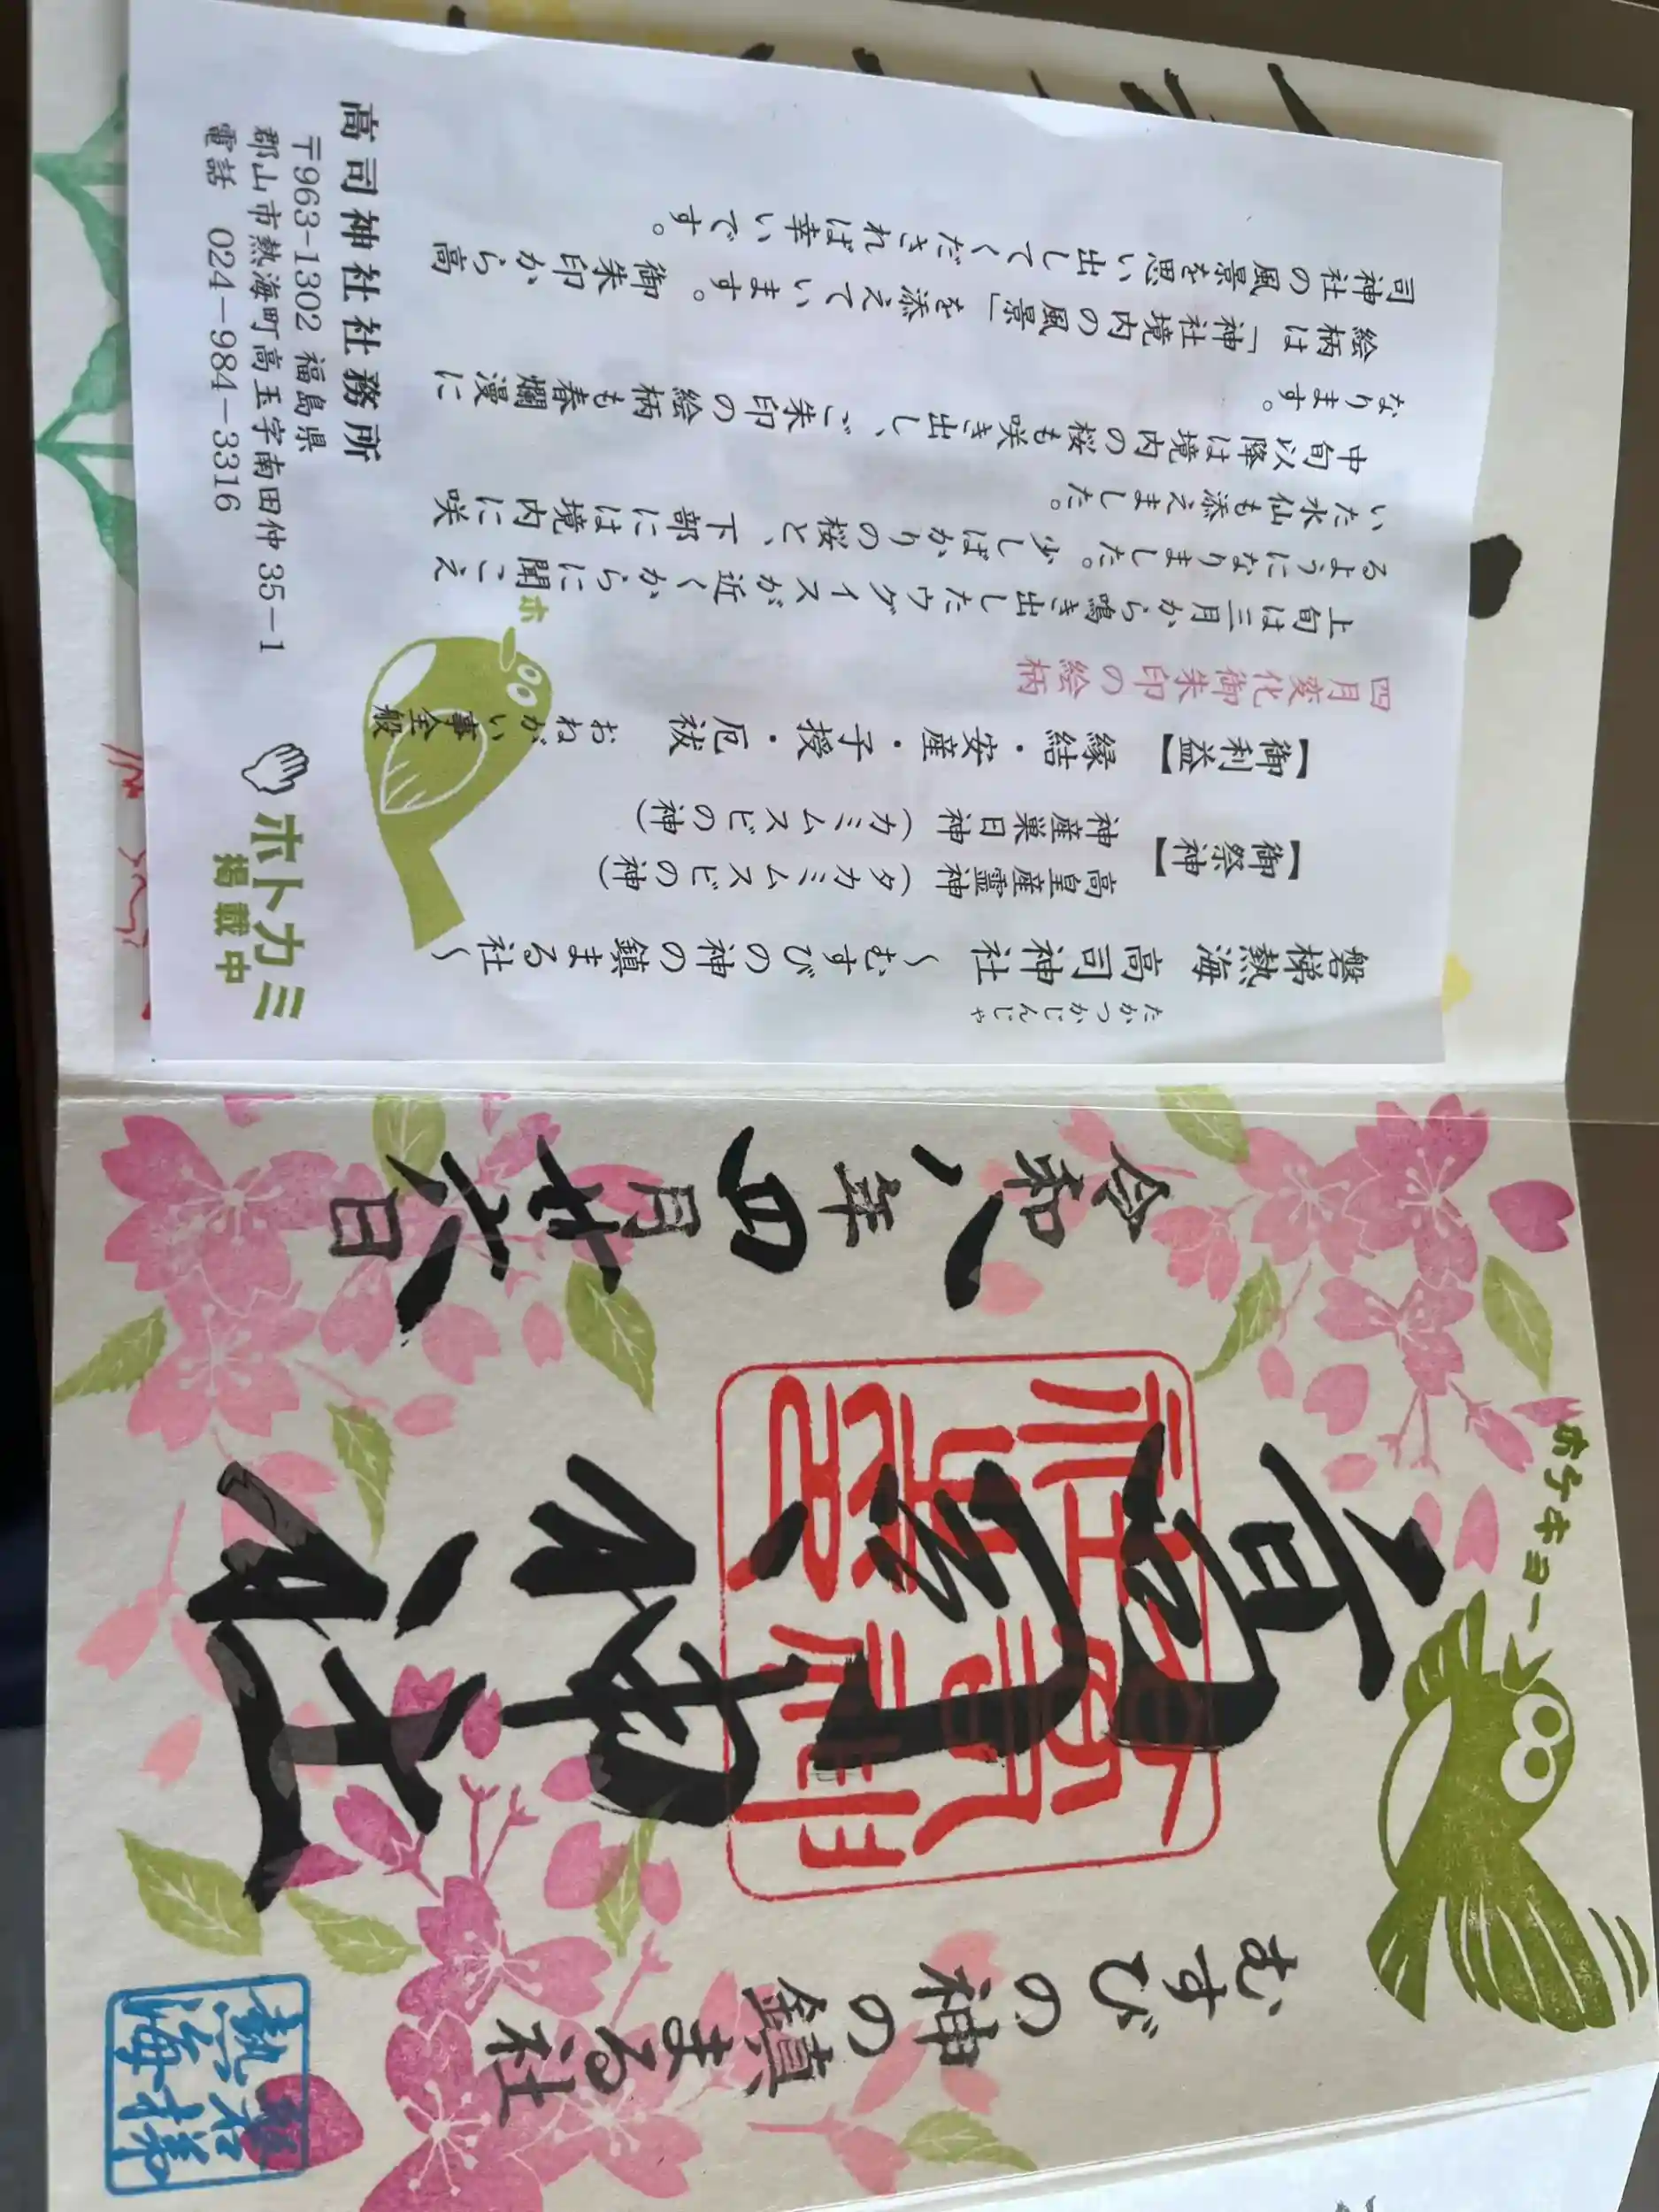 たかつかじんじゃ
磐梯熱海　高司神社　～むすびの神の鎮まる社～
【御祭神】
高皇産霊神（タカミムスビの神）
神産巣日神（カミムスビの神）
【御利益】
縁結・安産・子授・厄祓
おねがい事全般
四月変化御朱印の絵柄
上旬は三月から鳴き出したウグイスが近くからに聞こえ
るようになりました。少しばかりの桜と、下部には境内に咲
いた水仙も添えました。
中旬以降は境内の桜も咲き出し、ご朱印の絵柄も春爛漫に
なります。
絵柄は「神社境内の風景」を添えています。御朱印から高
司神社の風景を思い出してくだされば幸いです。
高司神社社務所
〒963-1302 福島県
郡山市熱海町高玉字南田仲 35-1
電話　024-984-3316
ホ
ホトカミ
掲載中
ホチキョー
むすびの神の鎮まる社
高司神社
令和八年四月廿六日
磐梯
熱海